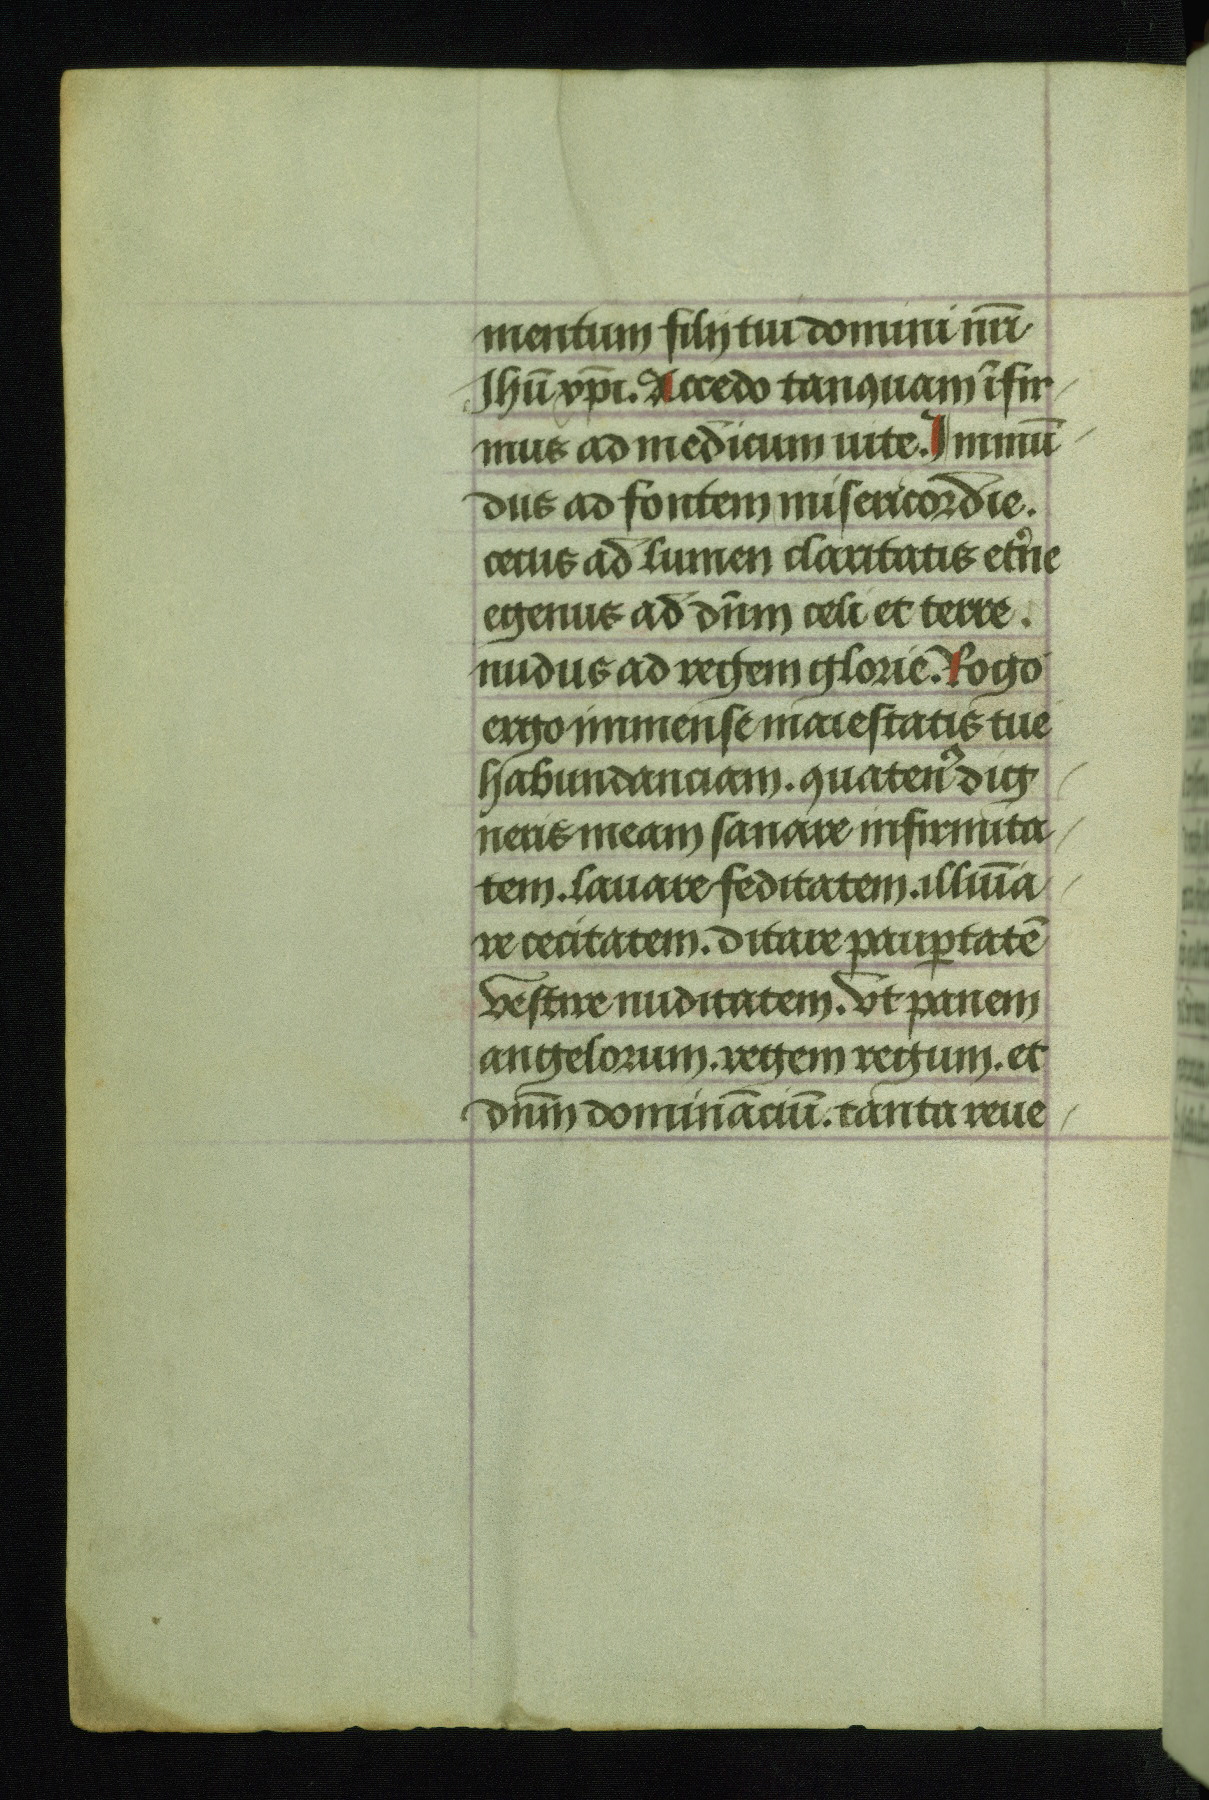 mentum filij tui domini nr̄i
Jhū xp̄i. Accedo tanquam īfir/
mus ad medicum uite. Immū/
dus ad fontem misericordie.
cecus ad lumen claritatis et͛ne
egenus ad dn̄m celi et terre.
nudus ad regem glorie. Rogo
ergo immense maiestatis tue
habundanciam. quatenꝰ dig/
neris meam sanare infirmita/
tem. lauare feditatem. illiūa/
re cecitatem. ditare paup̱tatē
vestire nuditatem. vt panem
angelorum. regem regum. et
dn̄m domināciū. tanta reue/